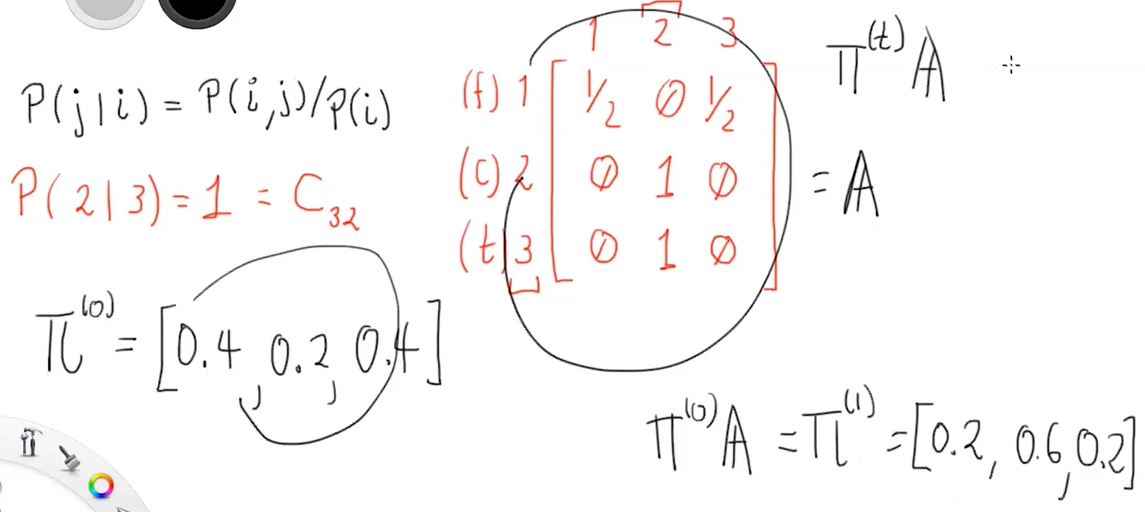 P(j|i) = P(i,j)/P(i)
P(2|3) = 1 = C₃₂
π⁽⁰⁾ = [0.4, 0.2, 0.4]
1 2 3
(f) 1 [ 1/2 0 1/2 ]
(C) 2 [ 0 1 0 ] = A
(t) 3 [ 0 1 0 ]
π⁽ᵗ⁾ A
π⁽⁰⁾ A = π⁽¹⁾ = [0.2, 0.6, 0.2]